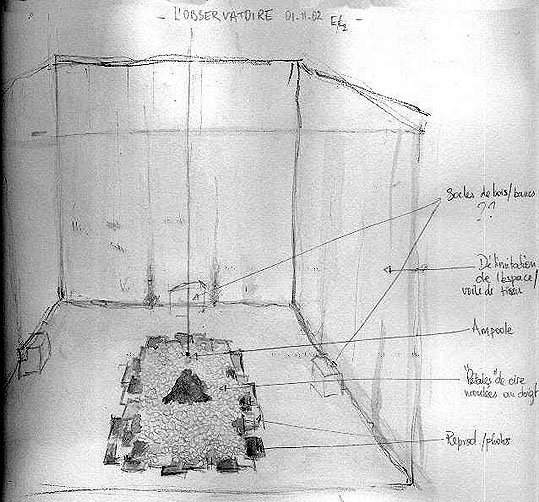 - L'OBSERVATOIRE 01.11.02
Socles de bois/bancs
??
Délimitation
de l'espace/
voile de tissu
Ampoule
"Pétales" de cire
moulées au doigt
Reprod/photos